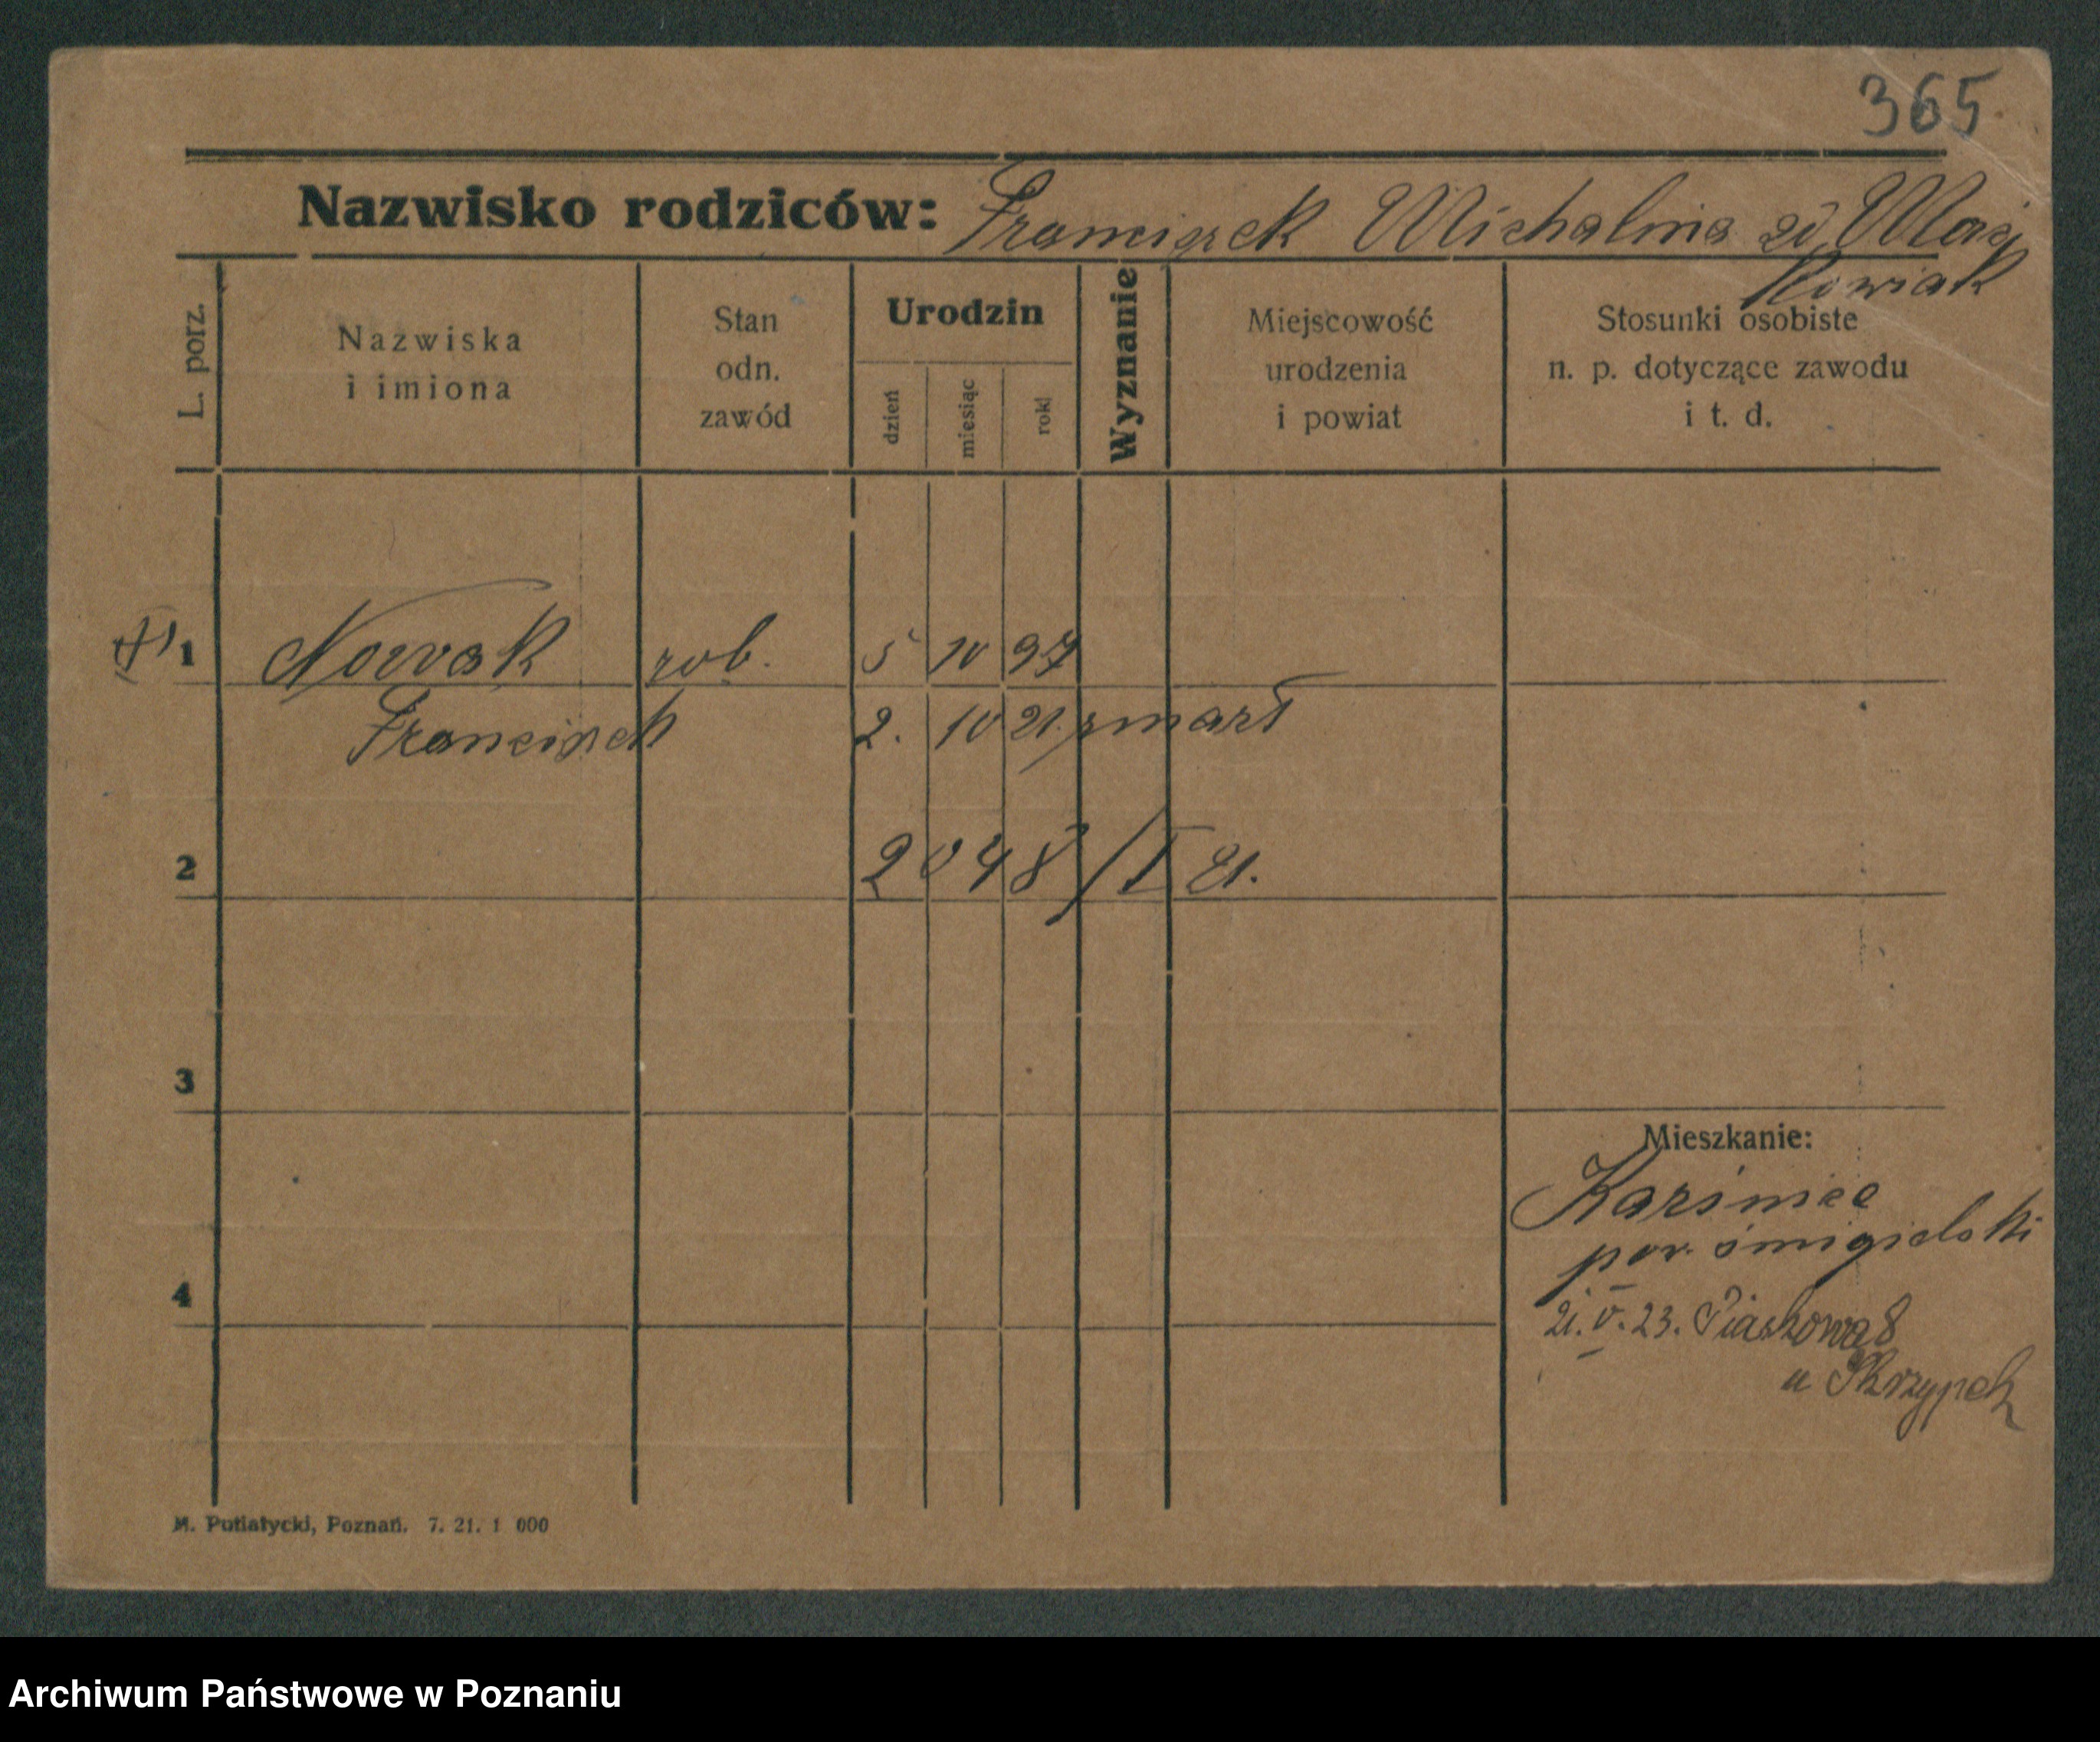 365
Nazwisko rodziców: Franciszek Michalina zd Maćkowiak
L. porz.
Nazwiska i imiona
Stan odn. zawód
Urodzin
dzień
miesiąc
rok
Wyznanie
Miejscowość urodzenia i powiat
Stosunki osobiste n. p. dotyczące zawodu i t. d.
1 Nowak rob. 5 10 97
Franciszek 2. 10 21. zmarł
2 2048/I 21.
3
Mieszkanie:
pow. śmigielski
4
21. V. 23. Piaskowa 8
u Skrzypek
M. Putiatycki, Poznań. 7. 21. 1 000
Archiwum Państwowe w Poznaniu